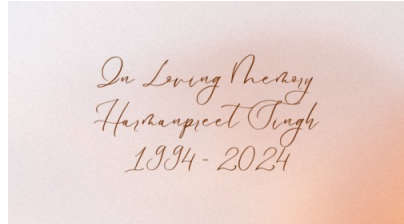 In Loving Memory
Harmanpreet Singh
1994 - 2024